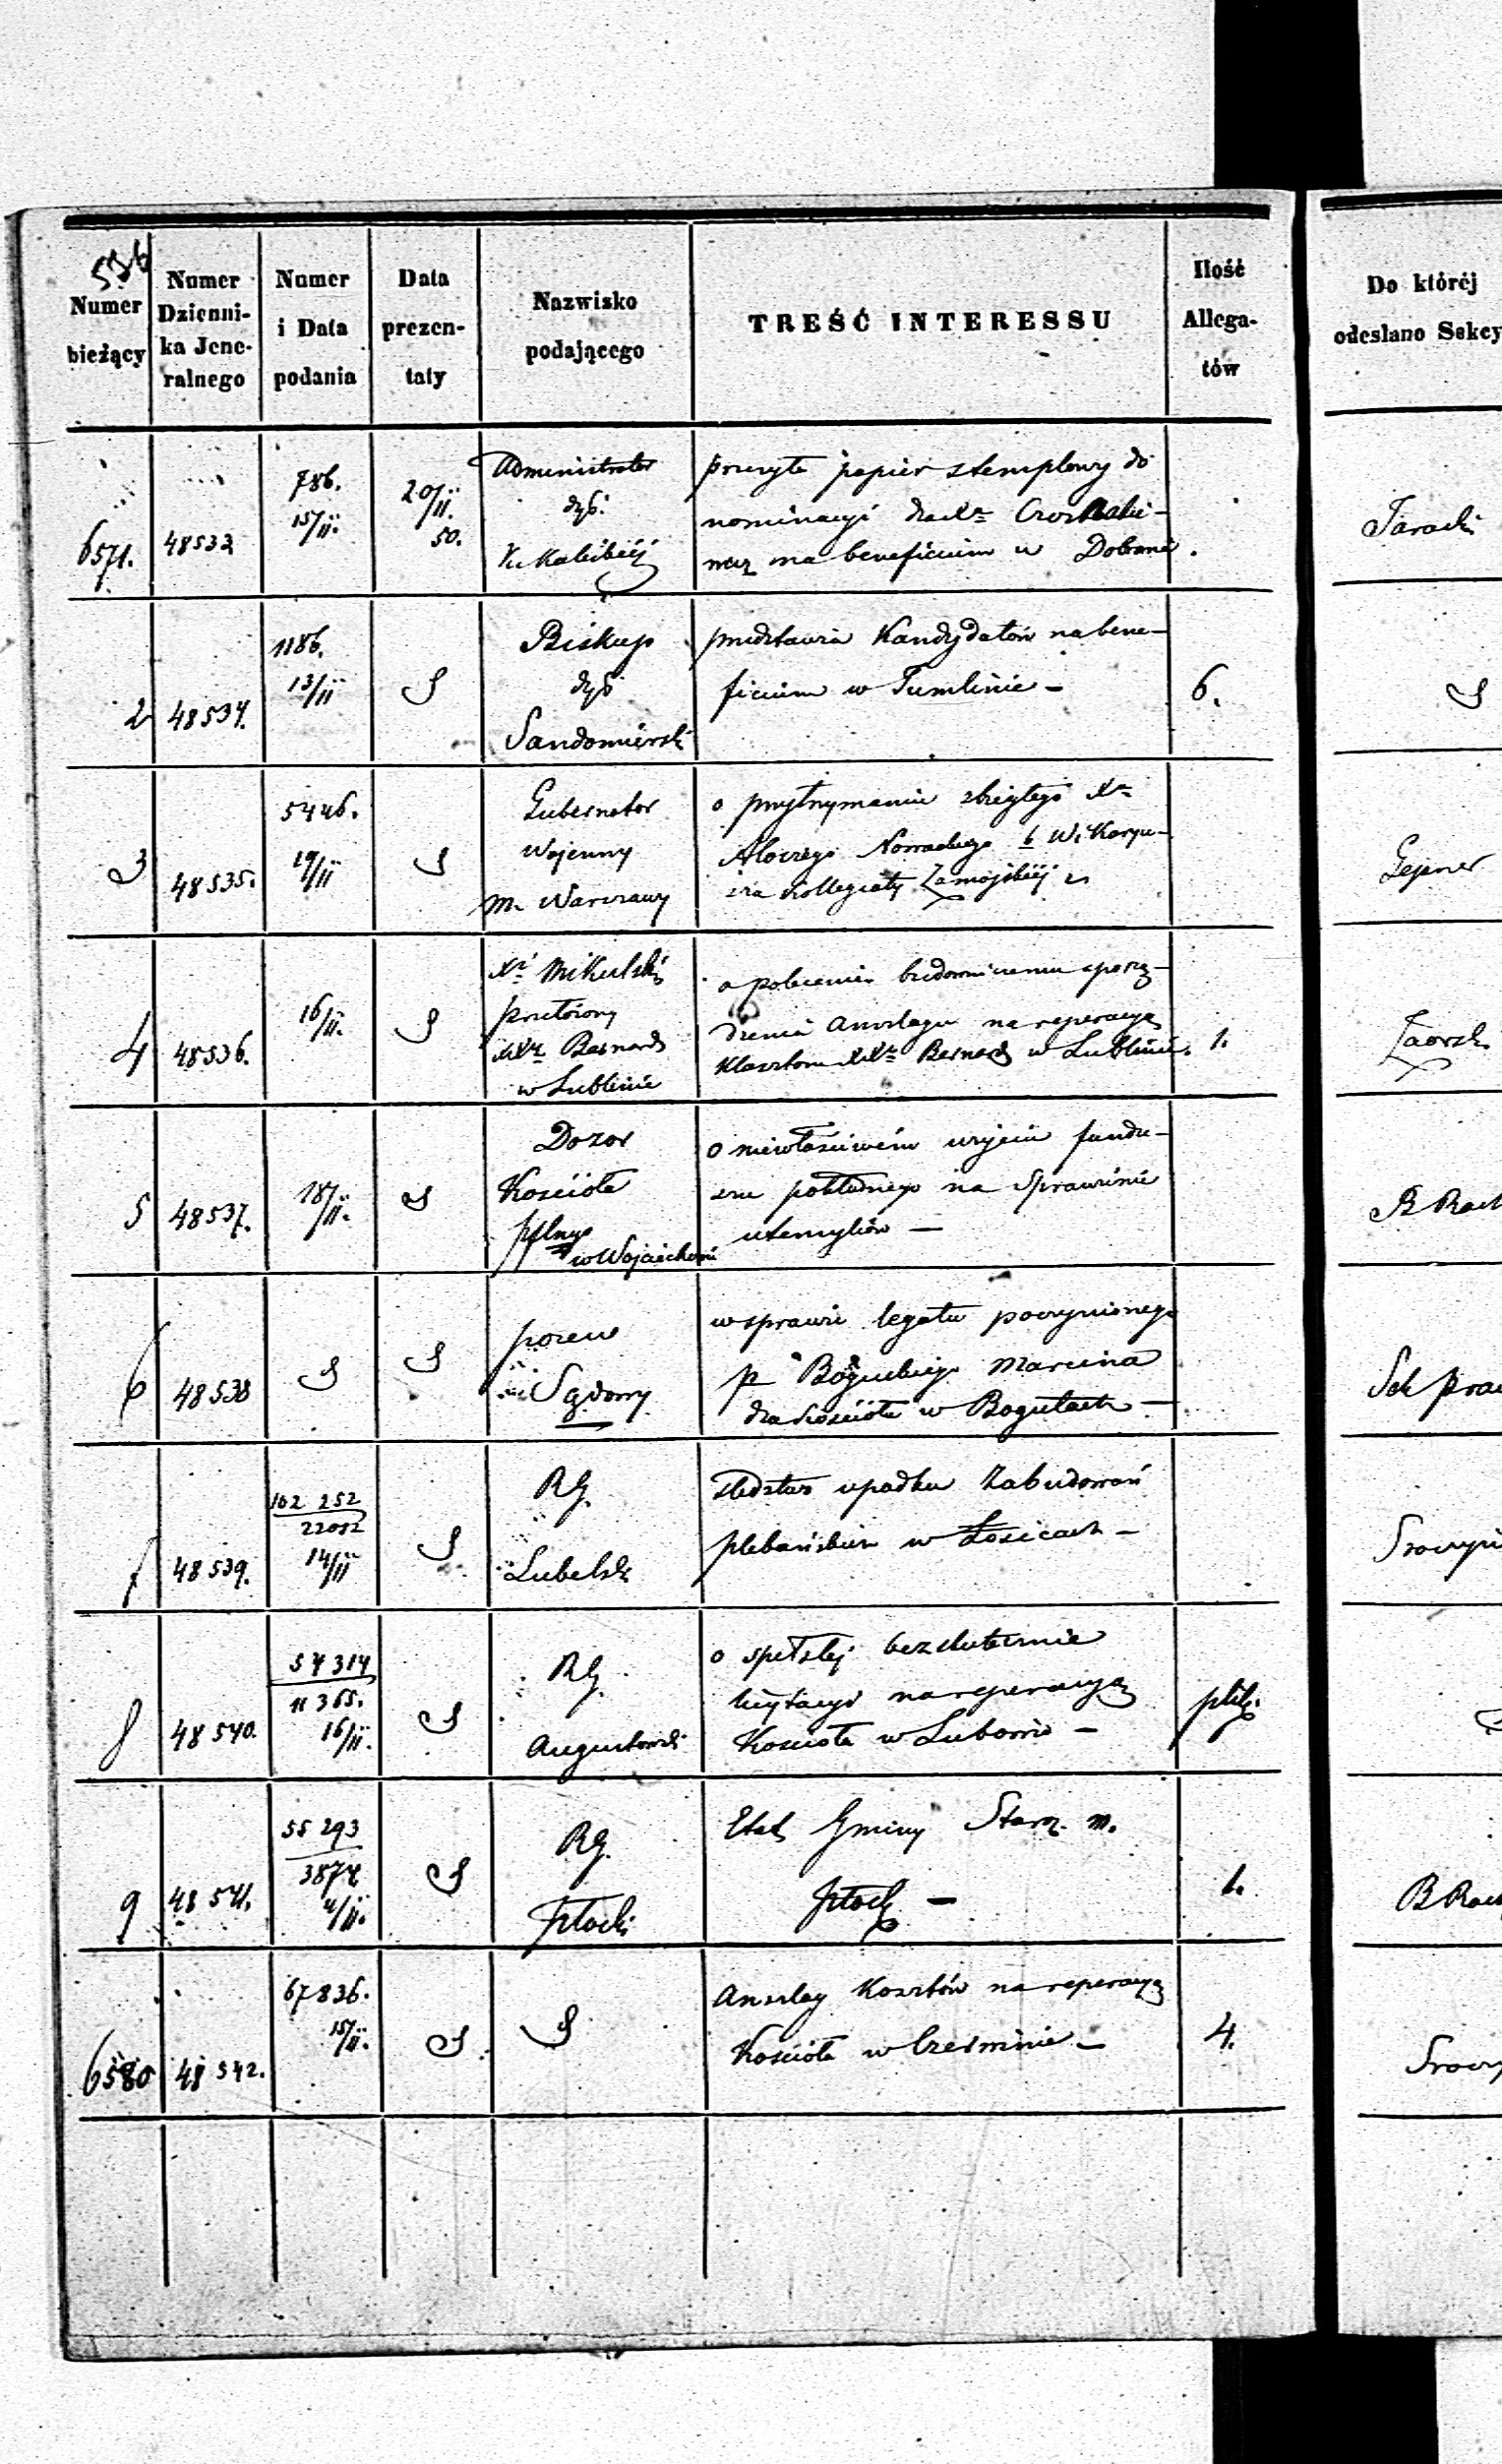 536
Numer bieżący
Numer Dzienni-ka Jene-ralnego
Numer i Data podania
Data prezen-taty
Nazwisko podającego
TREŚĆ INTERESSU
Ilość Allega-tów
Do któréj odesłano Sekcy
6571.
48533
786.
15/II.
20/II.
50.
Administrator
dyó.
Ku Kaliskiéj
przesyła papier stemplowy do
nominacyi dla Xa
na beneficium w
Taracki
2
48534.
1186.
13/II
S
Biskup
dyó
Sandomiérski
przedstawia Kandydatów na bene-
ficium w Tumlinie –
6.
S
3
48535.
5446.
19/II
S
Gubernator
Wojenny
m. Warszawy
o przytrzymanie zbiegłego Xa
Alojzego Nowackiego b. Wikaryu-
sza Kollegiaty Zamojskiéj
4
48536.
16/II.
S
Xa Mikulski
przełożony
XXzy Bernard
w Lublinie
o polecenie budowniczemu sporzą-
dzenia Anszlagu na reperacyą
Klasztoru XXzy Bernard w Lublinie.
1.
Zaorsk.
5
48537.
18/II.
S
Dozor
Kościoła
pflnego
w Wojciechowie
o niewłaściwém użyciu fundu-
szu pokładnego na Sprawienie
utensyliów –
B Rach
6
48538
S
S
pozew
Sądowy
w sprawie legatu poczynionego
p Boguckiego Marcina
dla Kościoła w Bogutach –
Sek praw
7
48539.
102 252
22052
14/II
S
RG.
Lubelski
śledztwo upadku Zabudowań
plebańskich w Łosicach –
8
48540.
57 314
11 365.
16/II.
S
RG.
Augustowski
o spełzłej bezskutecznie
licytacyi na reperacyą
Kościoła w Lubowie –
plik.
9
48541.
55 293
3874
S
RG.
Płocki
Etat Gminy Staroz. m.
Płock –
1.
B Rach
6580
48542.
67836.
15/II.
S
S
Anszlag Kosztów na reperacyą
Kościoła w Czerminie –
4.